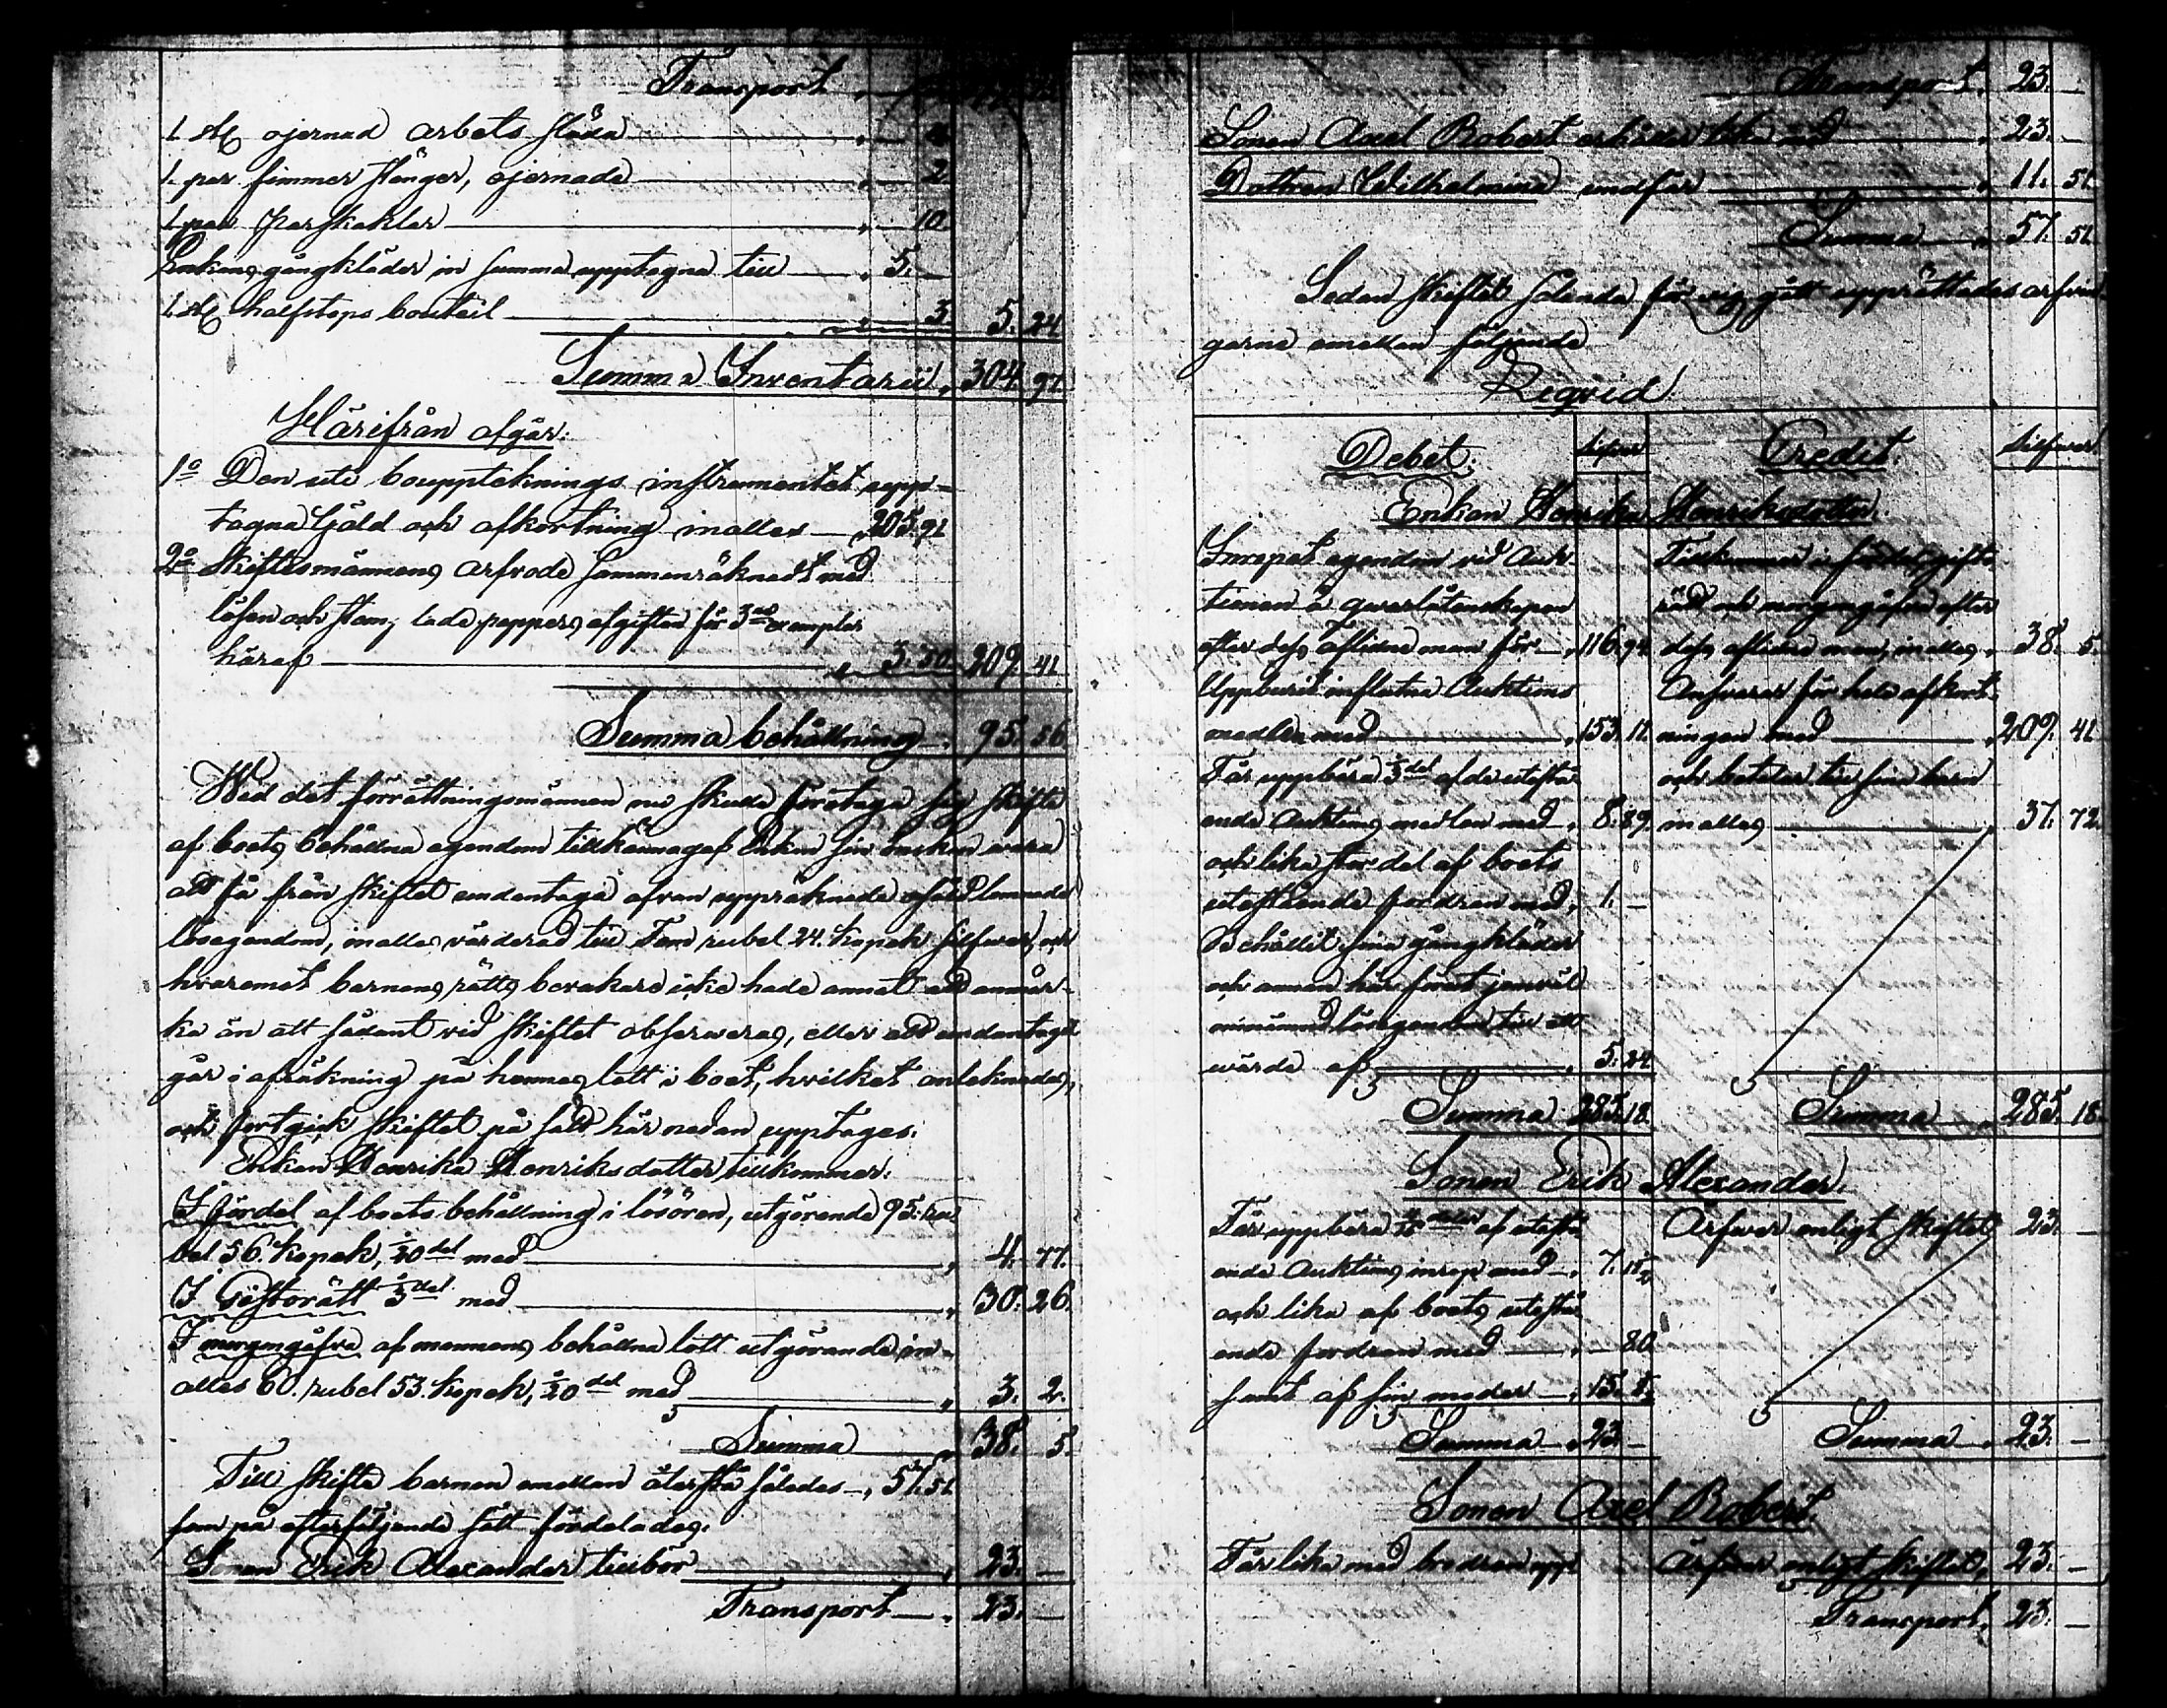 Transport
1. st ojernad arbets släda — 4.
1. par timmer stänger, ojernade — 2.
1. par parskaklar — 10.
Enkans gångkläder in summa upptagna till — 5. —
1. st halfstops bouteil — 3. 5. 24
Summa Inventarii, 304. 97.
Härifrån afgår:
1o Den uti bouppteknings instrumentet upp-
tagna Gäld och afkortning inalles — 205. 91
2o Skiftesmännens arfvode sammanräknadt med
lösen och stamplade pappers afgiften för 3ne exemplar
häraf — 3. 50. 209. 41.
Summa behållning — 95. 56.
Wid det förrättningsmännen nu skulle företaga sig skifta
af boets behållna egendom tillkännagaf Enkan sin önskan vara
att få från skiftet undantaga ofvan uppräknade osåld lemnade
lösegendom, inalles värderad till Fem rubel 24. kopek silfver, och
hvaremot barnens rätts bevakare icke hade annat att anmär-
ka än att sådant vid skiftet observeras, eller att undantaget
går i afräkning på hennes lott i boet, hvilket anteknades,
och fortgick skiftet på sätt här nedan upptages:
Enkan Henrika Henriksdotter tillkommer:
I fördel af boets behållning i lösören, utgörande 95. ru-
bel 56. kopek, 1/20 del med — 4. 77.
I Giftorätt 1/3 del med — 30. 26.
I morgongåfva af mannens behållna lott utgörande in-
alles 60. rubel 53. kopek, 1/20 del med — 3. 2.
Summa — 38. 5.
Till skifte barnen emellan återstå således — 57. 51.
som på efterföljande sätt fördelades.
Sonen Erik Alexander tillbör — 23. —
Transport — 23. —
Transport. 23. —
Sonen Axel Robert erhåller lika med — 23. —
Dottren Wilhelmina undfår — 11. 51
Summa — 57. 51
Sedan skiftet sålunda för sig gått upprättades arfvin-
garne emellan följande
Liqvid
Debet. Silfver Credit. Silfver
Enkan Henrika Henriksdotter.
Inropat egendom vid Auk-
tionen å qvarlåtenskapen
efter dess aflidne man för — 116. 94.
Uppburit influtna Auktions
medlen med — 153. 11.
Får uppbära 1/3 del af de utestå-
ende Auktions medlen med — 8. 89.
och lika stor del af boets
utestående fordran med, 1. —
Behållit sina gångkläder
och annan här förut jemväl
omnämnd lösegendom till ett
värde af — 5. 24.
Summa 285. 18.
Tillkommer i fördel, gifto-
rätt och morgongåfva efter
dess aflidne man, inalles, 38. 5.
Ansvarar för hela afkort-
ningen med — 209. 41
och betalar till sina barn
inalles — 37. 72.
Summa — 285. 18.
Sonen Erik Alexander.
Får uppbära af utestå-
ende Auktions inrop med — 7.
och lika af boets utestå-
ende fordran med — 80
samt af sin moder — 15.
Summa — 23. —
Ärfver enligt skiftet 23. —
Summa — 23. —
Sonen Axel Robert.
Får lika med brodren upp-
Ärfver enligt skiftet, 23. —
Transport. 23. —